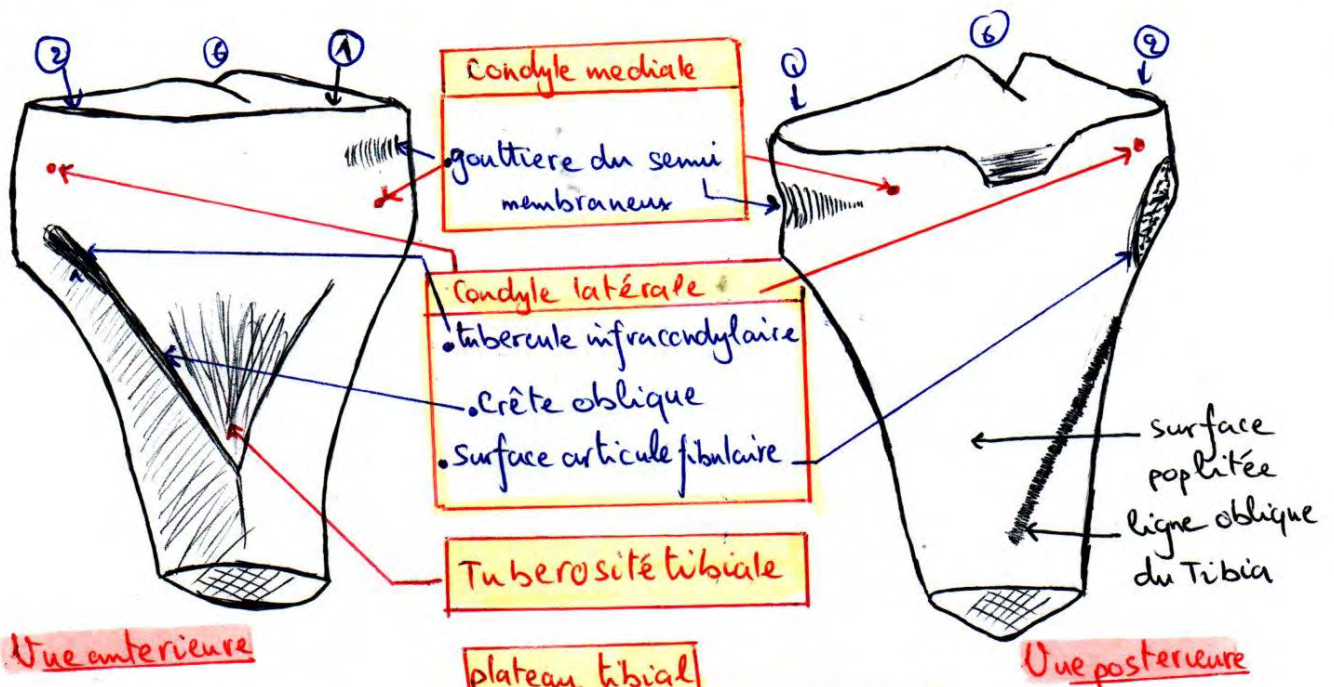 2
6
1
Condyle mediale
.gouttiere du semi
membraneux
Condyle latérale
.tubercule infracondylaire
.Crête oblique
.surface articule fibulaire
Tuberosité tibiale
plateau tibial
Vue anterieure
1
6
2
surface
poplitée
ligne oblique
du Tibia
Vue posterieure